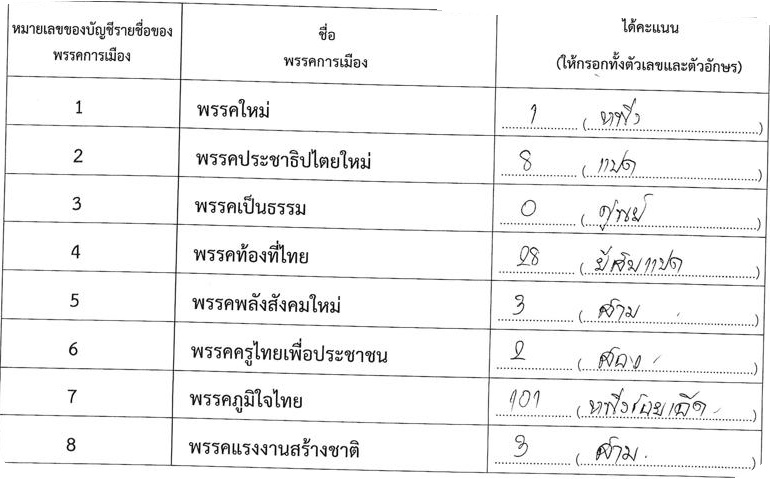 หมายเลขของบัญชีรายชื่อของ
พรรคการเมือง
ชื่อ
พรรคการเมือง
ได้คะแนน
(ให้กรอกทั้งตัวเลขและตัวอักษร)
1 พรรคใหม่ 1 (หนึ่ง)
2 พรรคประชาธิปไตยใหม่ 8 (แปด)
3 พรรคเป็นธรรม 0 (ศูนย์)
4 พรรคท้องที่ไทย 28 (ยี่สิบแปด)
5 พรรคพลังสังคมใหม่ 3 (สาม)
6 พรรคครูไทยเพื่อประชาชน 2 (สอง)
7 พรรคภูมิใจไทย 101 (หนึ่งร้อยเอ็ด)
8 พรรคแรงงานสร้างชาติ 3 (สาม)